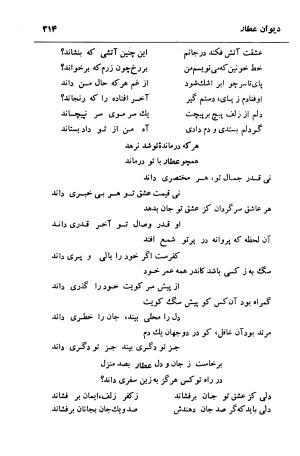 دیوان عطار ۳۱۴
عشقت آتش فکند در جانم این چنین آتشی که بنشاند؟
خط خونین که می‌نویسم من بر رخ چون زرم که برخواند؟
پای تا سر چو ابر اشک شود از غم هر که حال من داند
اوفتادم ز پای، دستم گیر آخر افتاده را که رنجاند؟
دلم از زلف پیچ بر پیچت یک سر موی سر نپیچاند
گر دلم بستدی و دم دادی آه من از تو داد بستاند
هر که درماندهٔ تو شد نرهد
همچو عطار با تو درماند
نی قدر جمال تو، هر مختصری داند
نی قیمت عشق تو هر بی خبری داند
هر عاشق سرگردان کز عشق تو جان بدهد
او قدر وصال تو آخر قدری داند
آن لحظه که پروانه در پرتو شمع افتد
کفرست اگر خود را بالی و پری داند
سگ به ز کسی باشد کاندر همه عمر خود
از پیش سر کویت خود را گذری داند
گمراه بود آن کس کو پیش سگ کویت
دل را محلی بیند، جان را خطری داند
مرتد بود آن غافل، کو در دوجهان یک دم
جز تو دگری بیند جز تو دگری داند
برخاست ز جان و دل عطار بصد منزل
در راه تو کس هرگز به زین سفری داند؟
دلی کز عشق تو جان برفشاند ز کفر زلف، ایمان بر فشاند
دلی باید که گر صد جان دهندش صد و یک جان بجانان برفشاند